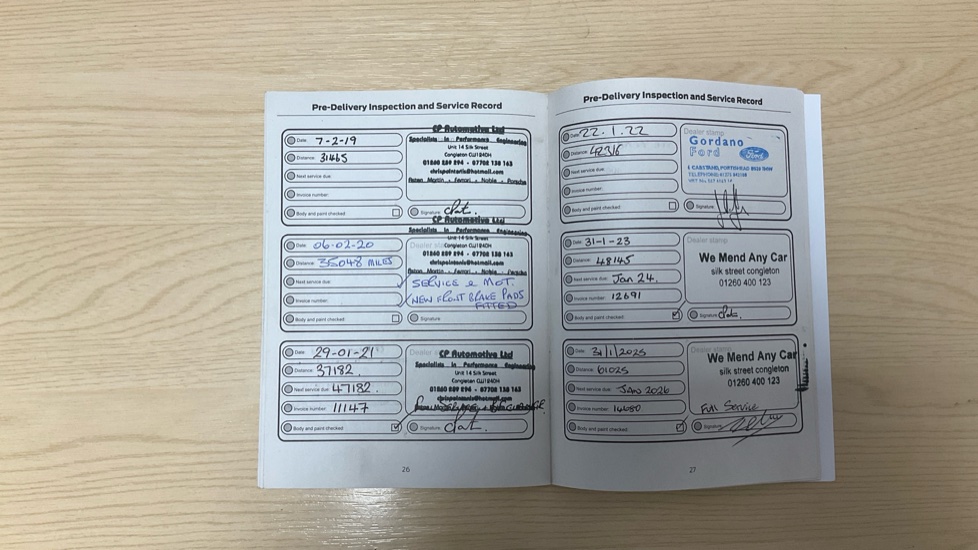 Pre-Delivery Inspection and Service Record
Date: 7-2-19
Distance: 31465
Next service due:
Invoice number:
Body and paint checked
CP Automotive Ltd
Specialists in Performance Engineering
Unit 14 Silk Street
Congleton CW12 4DH
01260 889 894 - 07708 138 163
Aston Martin - Ferrari - Noble - Porsche
Signature
Date: 06-02-20
Distance: 35048 MILES
Next service due:
Invoice number:
Body and paint checked
CP Automotive Ltd
Specialists in Performance Engineering
Unit 14 Silk Street
SERVICE & MOT.
NEW FRONT BRAKE PADS
FITTED
Signature
Date: 29-01-21
Distance: 37182
Next service due: 47182
Invoice number: 11147
Body and paint checked
CP Automotive Ltd
Specialists in Performance Engineering
Unit 14 Silk Street
Signature
26
Pre-Delivery Inspection and Service Record
Date: 22.1.22
Distance: 42316
Next service due:
Invoice number:
Body and paint checked
Dealer stamp
Gordano
Ford
Ford
Signature
Date: 31-1-23
Distance: 48145
Next service due: Jan 24.
Invoice number: 12691
Body and paint checked
Dealer stamp
We Mend Any Car
silk street congleton
01260 400 123
Signature
Date: 31/1/2025
Distance: 61025
Next service due: JAN 2026
Invoice number: 14080
Body and paint checked
Dealer stamp
We Mend Any Car
silk street congleton
01260 400 123
Full Service
Signature
27